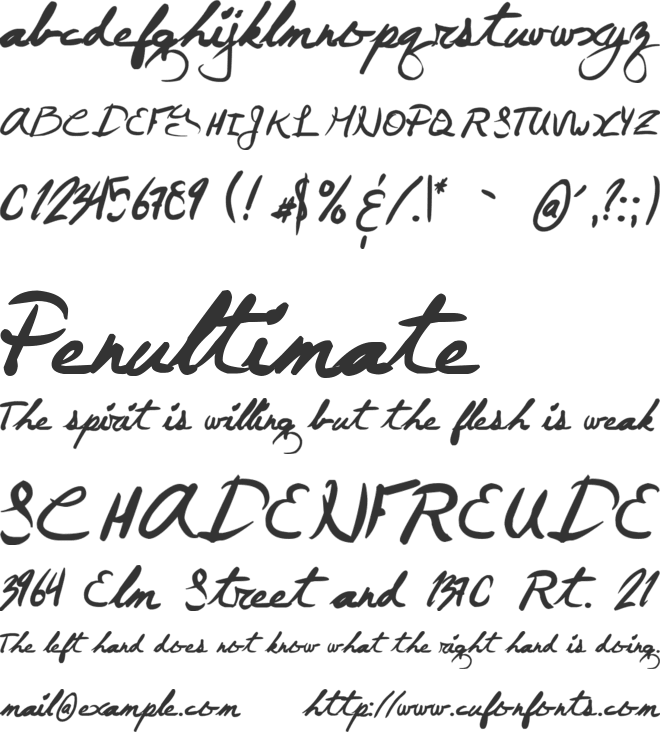 abcdefghijklmnopqrstuvwxyz
ABCDEFGHIJKLMNOPQRSTUVWXYZ
0123456789 (!#$%&/.|* ` @',?:;)
Penultimate
The spirit is willing but the flesh is weak
SCHADENFREUDE
3964 Elm Street and 1370 Rt. 21
The left hand does not know what the right hand is doing.
mail@example.com http://www.cufonfonts.com